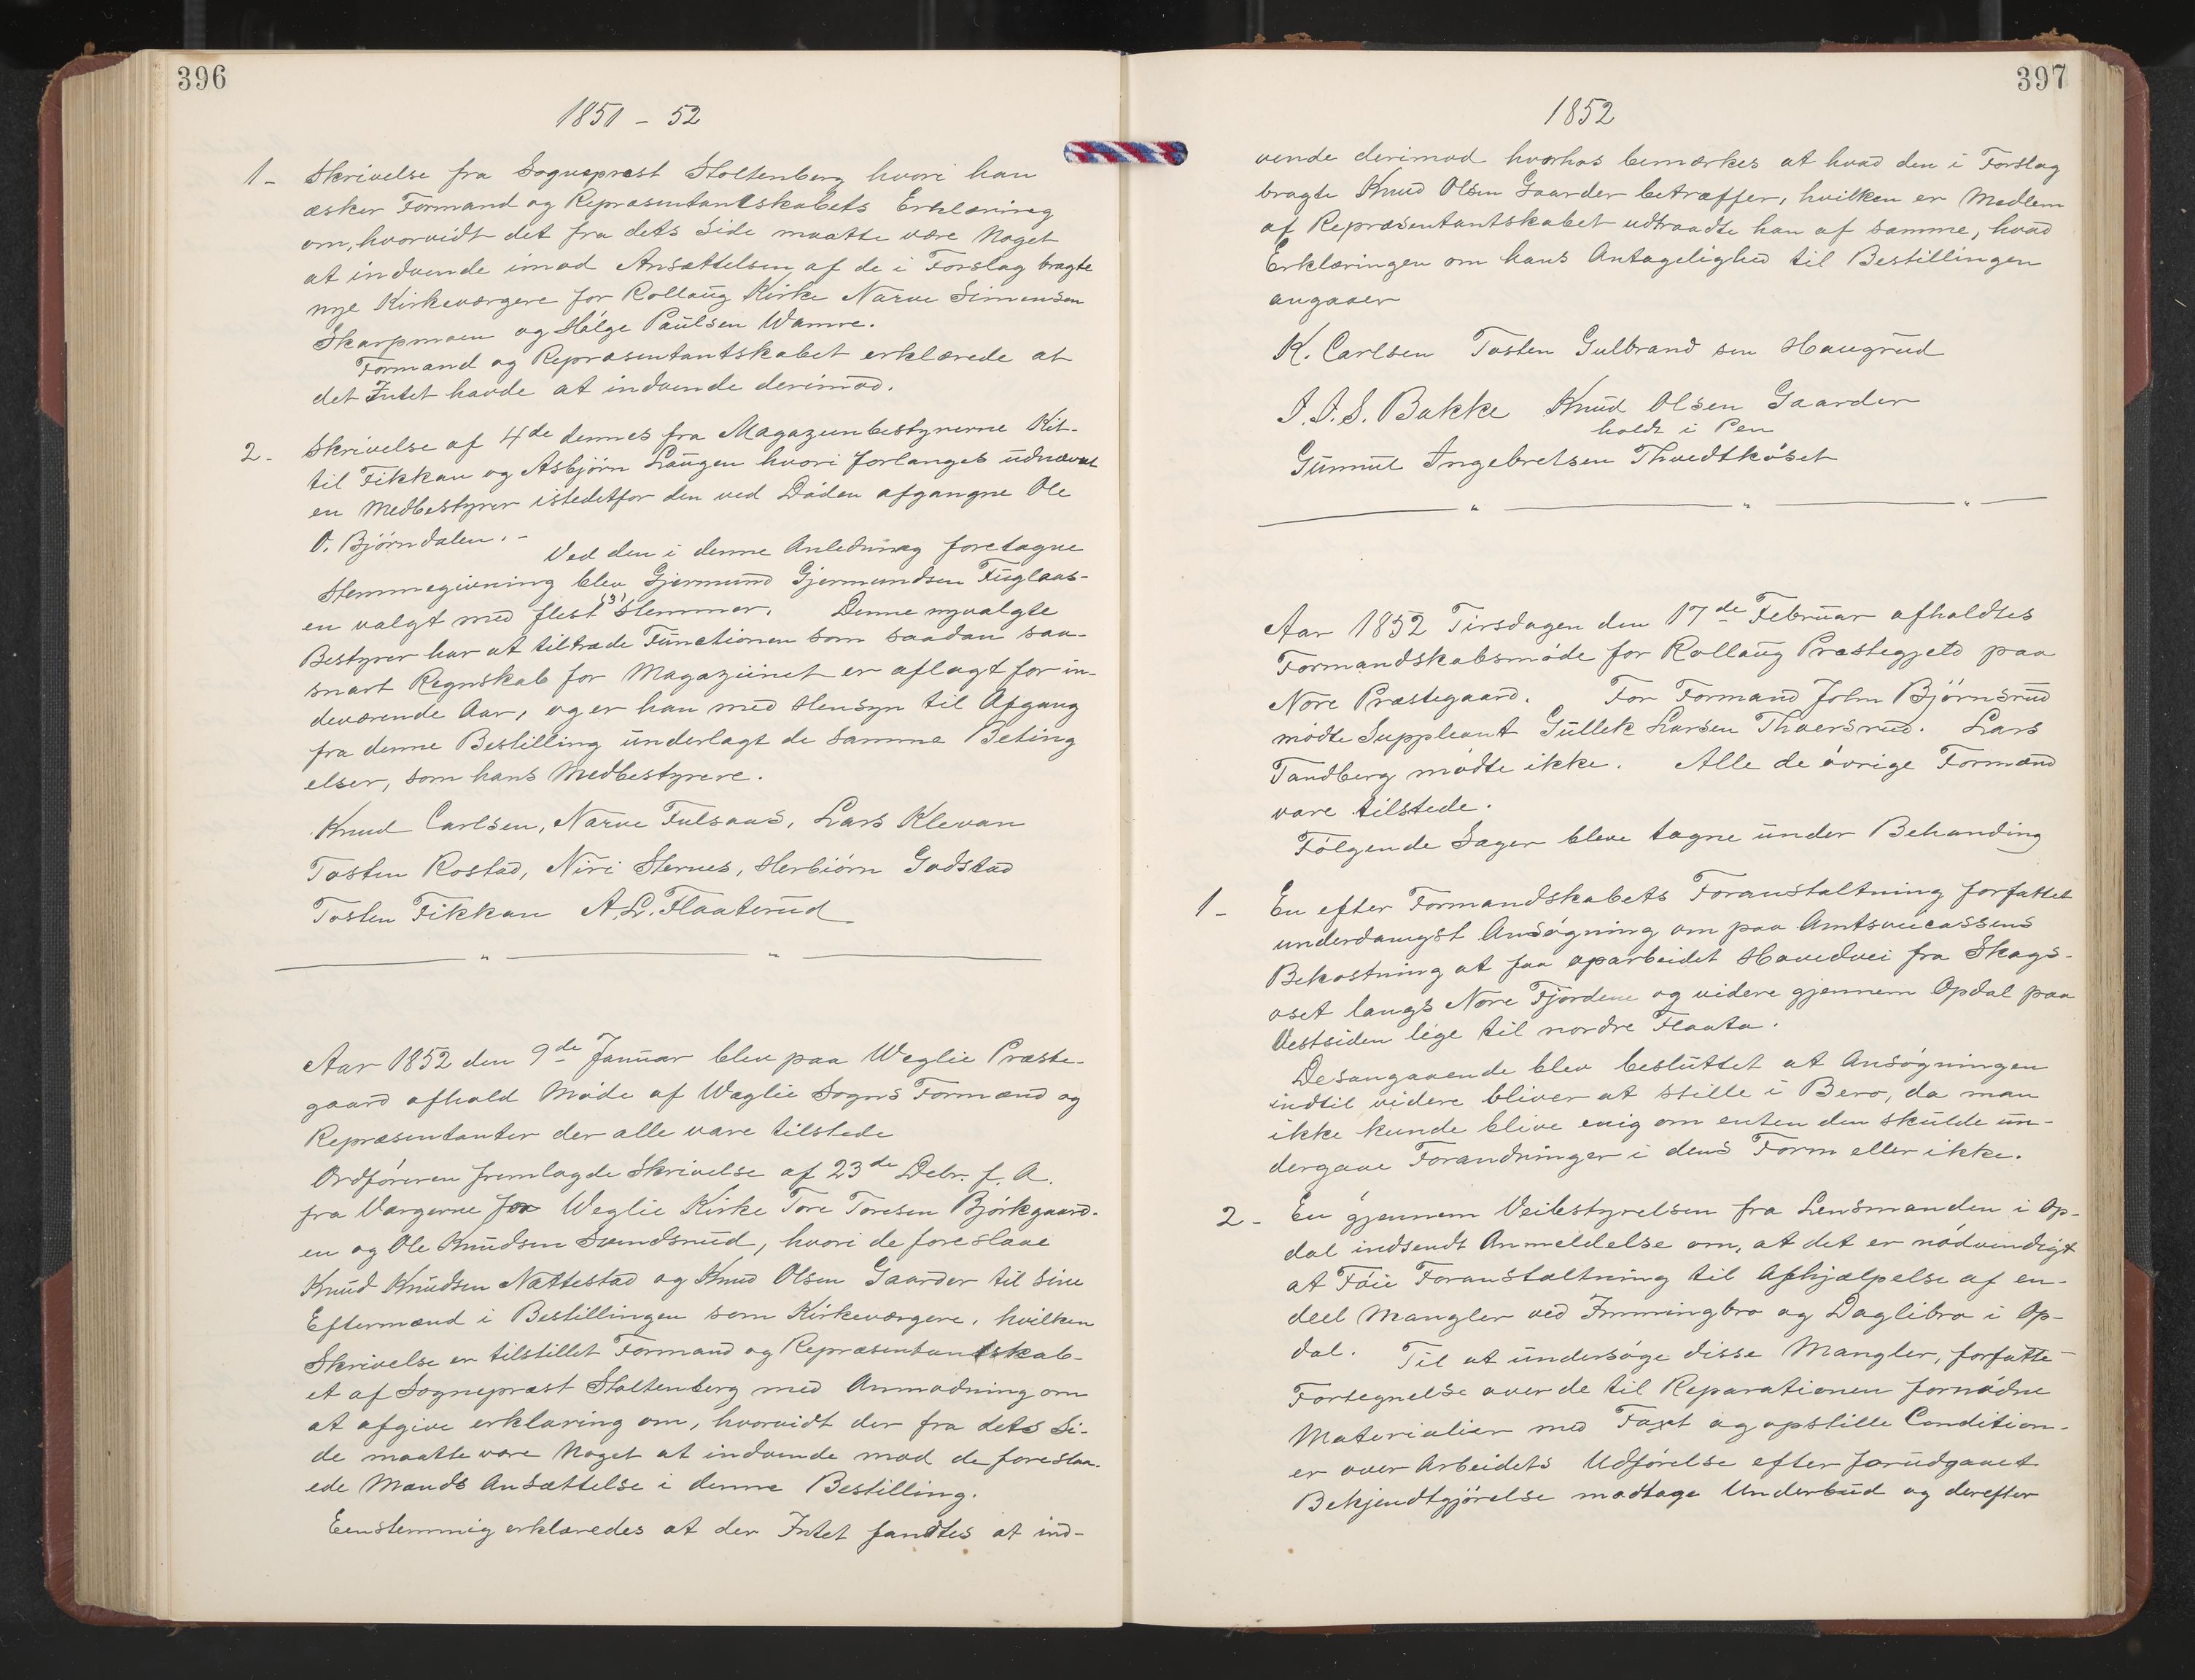 396
1851 - 52
1 - Skrivelse fra Sogneprest Stoltenberg hvori han
æsker Formand og Repræsentantskabets Erklæring
om, hvorvidt det fra dets Side maatte være Noget
at indvende imod Ansættelsen af de i Forslag bragte
nye Kirkeværgere for Rollaug Kirke Narve Simensen
Skarpmoen og Helge Paulsen Wamre.
Formand og Repræsentantskabet erklærede at
det Intet havde at indvende derimod.
2 - Skrivelse af 4de dennes fra Magazinbestyrerne Kit-
til Fikkan og Asbjørn Laugen hvori forlanges udnævnt
en Medbestyrer istedetfor den ved Døden afgangne Ole
O. Bjørndalen. -
Ved den i denne Anledning foretagne
Stemmegivning blev Gjermund Gjermundsen Fuglaas-
en valgt med flest (3) Stemmer. Denne nyvalgte
Bestyrer har at tiltræde Functionen som saadan saa-
snart Regnskab for Magazinet er aflagt for in-
deværende Aar, og er han med Hensyn til Afgang
fra denne Bestilling underlagt de samme Beting
elser, som hans Medbestyrere.
Knud Carlsen, Narve Fulsaas, Lars Klevan
Tosten Rostad, Niri Sternes, Herbiørn Godstad
Tosten Fikkan A. L. Flaaterud
Aar 1852 den 9de Januar blev paa Weglie Præste-
gaard afhold Møde af Weglie Sogns Formænd og
Repræsentanter der alle vare tilstede
Ordføreren fremlagde Skrivelse af 23de Debr. f. A.
fra Værgerne for Weglie Kirke Tore Toresen Bjørkgaard-
en og Ole Knudsen Svendsrud, hvori de foreslaae
Knud Knudsen Nættestad og Knud Olsen Gaarder til sine
Eftermænd i Bestillingen som Kirkeværgere, hvilken
Skrivelse er tilstillet Formand og Repræsentantskab-
et af Sogneprest Stoltenberg med Anmodning om
at afgive erklæring om, hvorvidt der fra dets Si-
de maatte være Noget at indvende mod de foreslaa-
ede Mænds Ansættelse i denne Bestilling.
Eenstemmig erklæredes at der Intet fandtes at ind-
397
1852
vende derimod hvorhos bemærkes at hvad den i Forslag
bragte Knud Olsen Gaarder betræffer, hvilken er Medlem
af Repræsentantskabet udtraadte han af samme, hvad
Erklæringen om hans Antagelighed til Bestillingen
angaaer
K. Carlsen Tosten Gulbrand sen Haugrud
I. I. S. Bakke Knud Olsen Gaarder
holdt i Pen
Gunnul Ingebretsen Thvedtkøset
Aar 1852 Tirsdagen den 17de Februar afholdtes
Formandskabsmøde for Rollaug Præstegjeld paa
Nore Præstegaard. For Formand John Bjørnsrud
mødte Suppleant Gullek Larsen Thoersrud. Lars
Tandberg mødte ikke. Alle de øvrige Formænd
vare tilstede.
Følgende Sager bleve tagne under Behanding
1 - En efter Formandskabets Foranstaltning forfattet
underdanigst Ansøgning om paa Amtsveicassens
Bekostning at faa oparbeidet Hovedvei fra Skogs-
oset langs Nore Fjordene og videre gjennem Opdal paa
Vestsiden lige til nordre Flaata.
Desangaaende blev besluttet at Ansøgningen
indtil videre bliver at stille i Bero, da man
ikke kunde blive enig om enten den skulde un-
dergaae Forandringer i dens Form eller ikke.
2 - En gjennem Veibestyrelsen fra Lensmanden i Op-
dal indsendt Anmeldelse om, at det er nødvendigt
at Føie Foranstaltning til Afhjælpelse af en-
deel Mangler ved Immingbro og Daglibro i Op-
dal. Til at undersøge disse Mangler, forfatte
Fortegnelse over de til Reparationen fornødne
Materialier med Taxt og opstille Condition-
er over Arbeidets Udførelse efter forudgaaet
Bekjendtgjørelse modtage Underbud og derefter